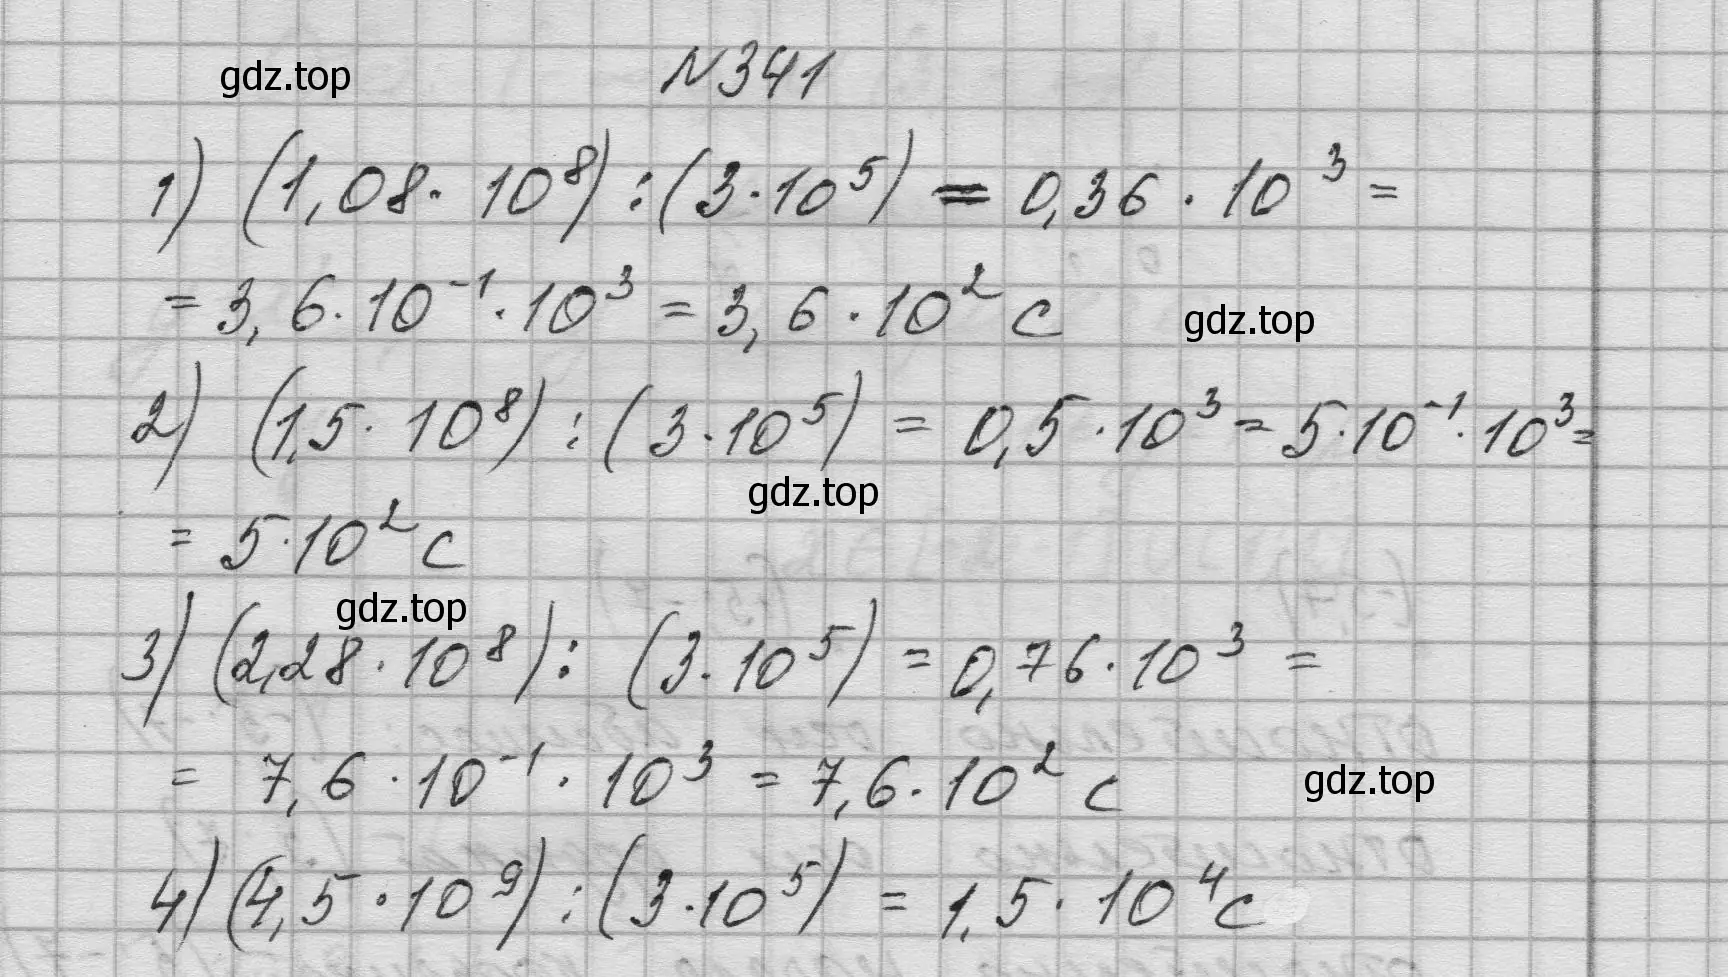 gdz.top
№341
1) (1,08 · 10⁸) : (3 · 10⁵) = 0,36 · 10³ =
= 3,6 · 10⁻¹ · 10³ = 3,6 · 10² с
gdz.top
2) (1,5 · 10⁸) : (3 · 10⁵) = 0,5 · 10³ = 5 · 10⁻¹ · 10³ =
gdz.top
= 5 · 10² с
gdz.top
3) (2,28 · 10⁸) : (3 · 10⁵) = 0,76 · 10³ =
= 7,6 · 10⁻¹ · 10³ = 7,6 · 10² с
gdz.top
4) (4,5 · 10⁹) : (3 · 10⁵) = 1,5 · 10⁴ с